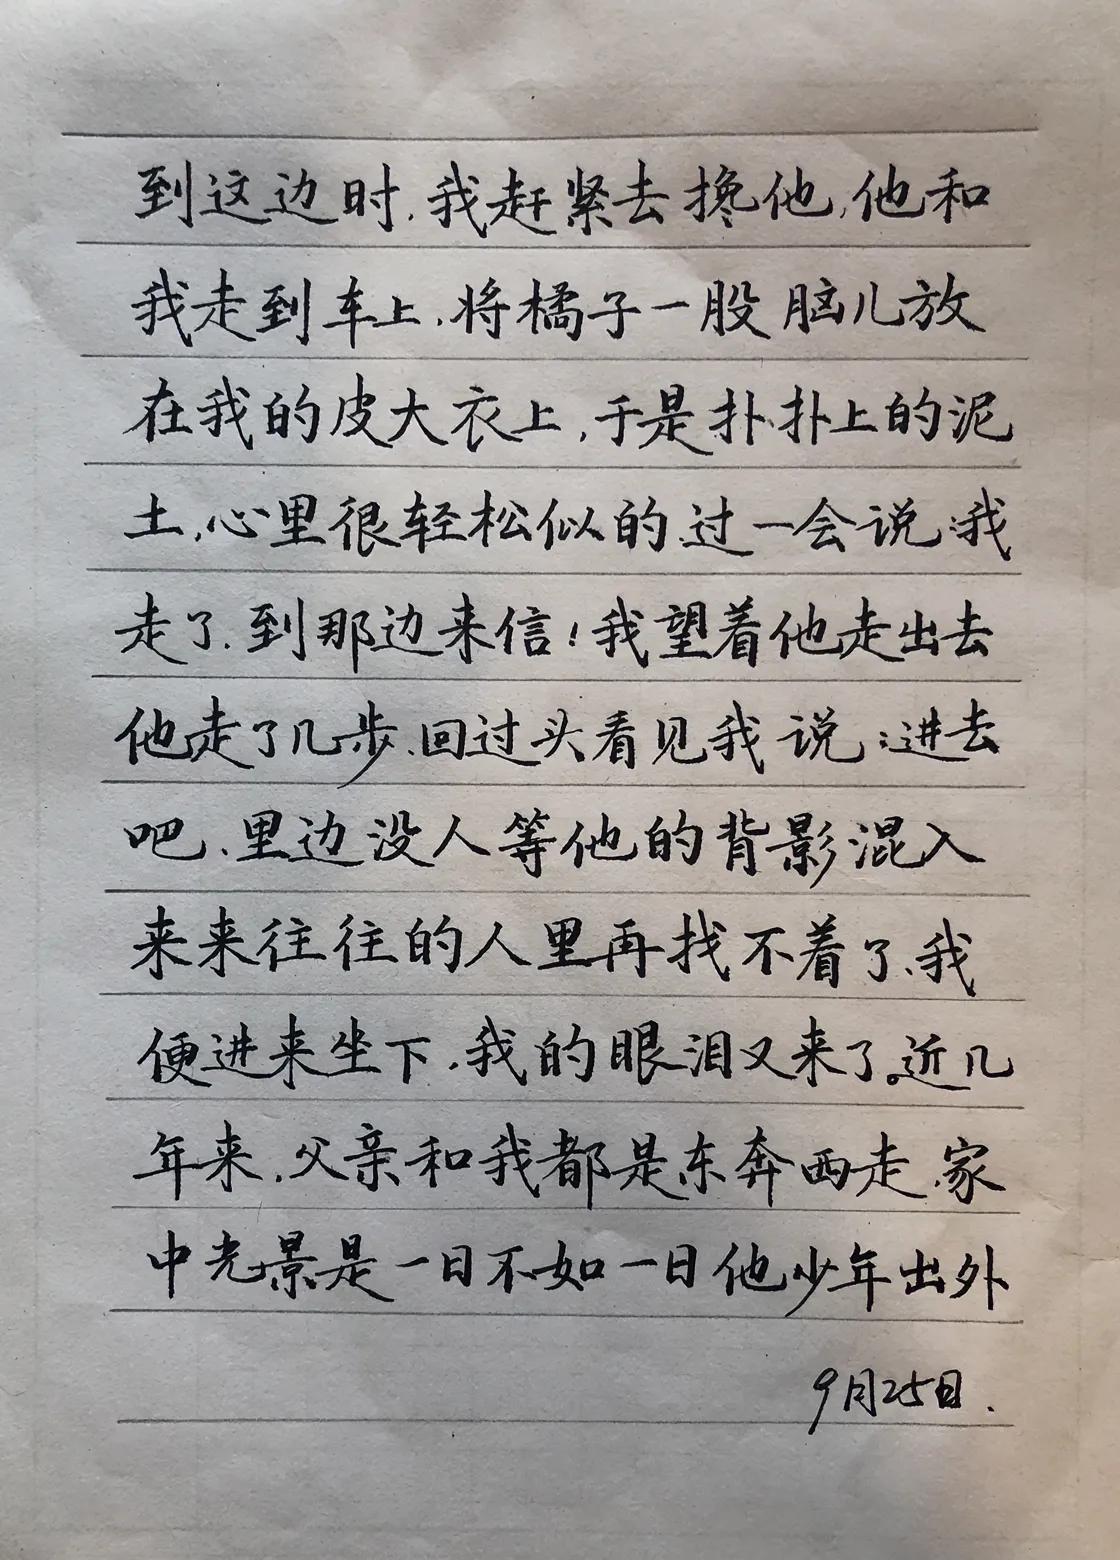 到这边时,我赶紧去搀他,他和
我走到车上,将橘子一股脑儿放
在我的皮大衣上,于是扑扑上的泥
土,心里很轻松似的、过一会说:我
走了、到那边来信!我望着他走出去
他走了几步、回过头看见我说:进去
吧、里边没人等他的背影混入
来来往往的人里再找不着了、我
便进来坐下,我的眼泪又来了。近几
年来,父亲和我都是东奔西走、家
中光景是一日不如一日他少年出外
9月25日.